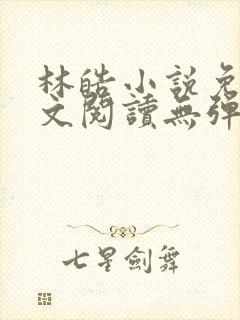 林皓小說免
文閱讀無彈
七星劍舞